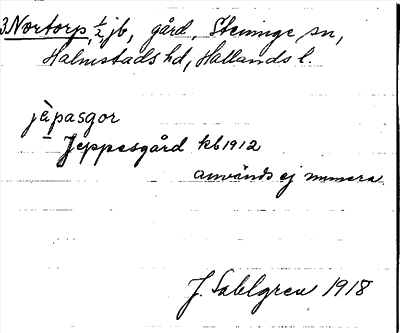 3 Nortorp, 1/2 jb, gård, Steninge sn,
Halmstads hd, Hallands l.
jèpasgor
Jeppesgård kb 1912
används ej numera
J. Sahlgren 1918